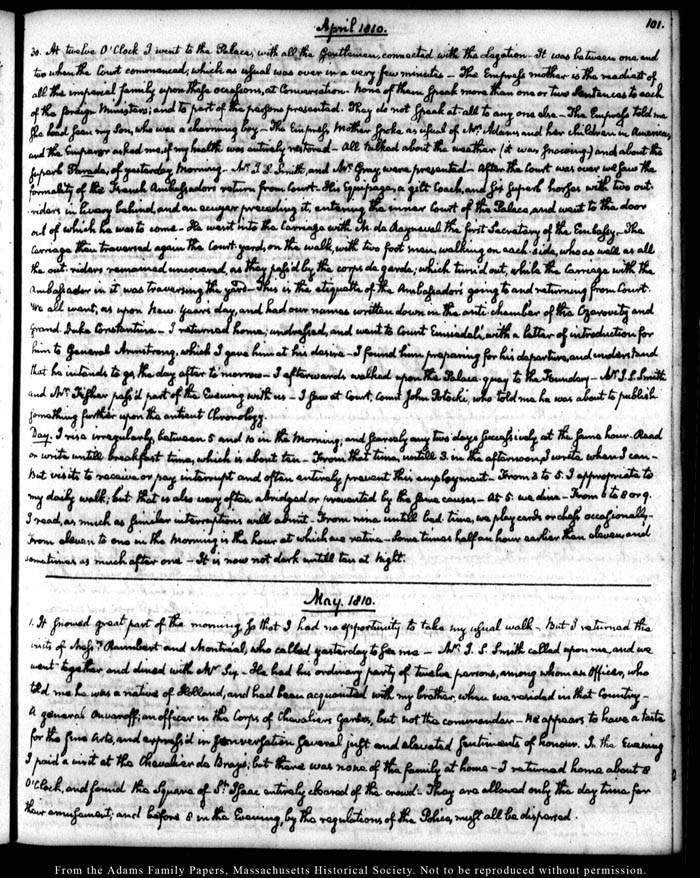 April 1810.
101.
30. At twelve O'Clock I went to the Palace, with all the Gentlemen, connected with the legation - It was between one and
two when the Court commenced, which as usual was over in a very few minutes - The Empress mother is the readiest of
all the imperial family upon these occasions, at Conversation - None of them speak more than one or two sentences to each
of the foreign Ministers; and to part of the persons presented. They do not speak at all to any one else - The Empress told me
she had seen my Son, who was a charming boy - The Empress Mother spoke as usual of Mrs Adams and her children in America,
and the Emperor asked me, if my health was entirely restored - All talked about the weather (it was snowing) and about the
superb Parade, of yesterday Morning - Mr J. S. Smith, and Mr Gray were presented - After the Court was over we saw the
formality of the French Ambassadors return from Court. His Equipage, a gilt Coach, and six superb horses with two out-
riders in livery behind, and an ecuyer preceding it, entering the inner Court of the Palace, and went to the door
out of which he was to come - He went into the carriage with Mr de Rayneval the first Secretary of the Embassy - The
Carriage then traversed again the Court yard, on the walk, with two foot men, walking on each side, who as well as all
the out riders remained uncovered, as they pass'd by the corps de garde; which turn'd out, while the Carriage with the
Ambassador in it was traversing the yard - This is the etiquette of the Ambassadors going to and returning from Court.
We all went, as upon New Years day, and had our names written down in the anti chamber of the Czarovitz and
grand Duke Constantine - I returned home; undressed, and went to Count Einsiedel's, with a letter of introduction for
him to General Armstrong, which I gave him at his desire - I found him preparing for his departure, and understand
that he intends to go, the day after to morrow - I afterwards walked upon the Palace quay to the Foundery - Mr J. S. Smith
and Mr Fisher pass'd part of the Evening with us - I saw at Court, Count John Potocki, who told me he was about to publish
something further upon the antient Chronology.
Day. I rise irregularly, between 5 and 10 in the Morning; and scarcely any two days successively at the same hour. Read
or write untill breakfast time, which is about ten - From that time, untill 3. in the afternoon, I write when I can -
but visits to receive or pay interrupt and often entirely prevent this employment - From 3 to 5. I appropriate to
my daily walk; but that is also very often abridged or prevented by the same causes - At 5. we dine - From 6 to 8 or 9.
I read, as much as similar interruptions will admit - From nine untill bed time, we play cards or chess occasionally -
From eleven to one in the Morning is the hour at which we retire - Sometimes half an hour earlier than eleven, and
sometimes as much after one - It is now not dark untill ten at Night.
May. 1810.
1. It snowed great part of the morning, so that I had no opportunity to take my usual walk - But I returned the
visits of Messrs Raimbert and Montréal, who called yesterday to see me - Mr. J. S. Smith called upon me, and we
went together and dined with Mr Six - He had his ordinary party of twelve persons, among whom an Officer, who
told me he was a native of Holland, and had been acquainted with my brother, when we resided in that Country -
A general Ouvaroff, an officer in the Corps of Chevaliers Gardes, but not the commander - He appears to have a taste
for the fine Arts, and express'd in conversation several just and elevated sentiments of honour. In the Evening
I paid a visit at the Chevalier de Bray's; but there was none of the family at home - I returned home about 8
O'Clock, and found the Square of St. Isaac entirely cleared of the crowd. They are allowed only the day time for
their amusement; and before 8 in the Evening, by the regulations of the Police, must all be dispersed.
From the Adams Family Papers, Massachusetts Historical Society. Not to be reproduced without permission.